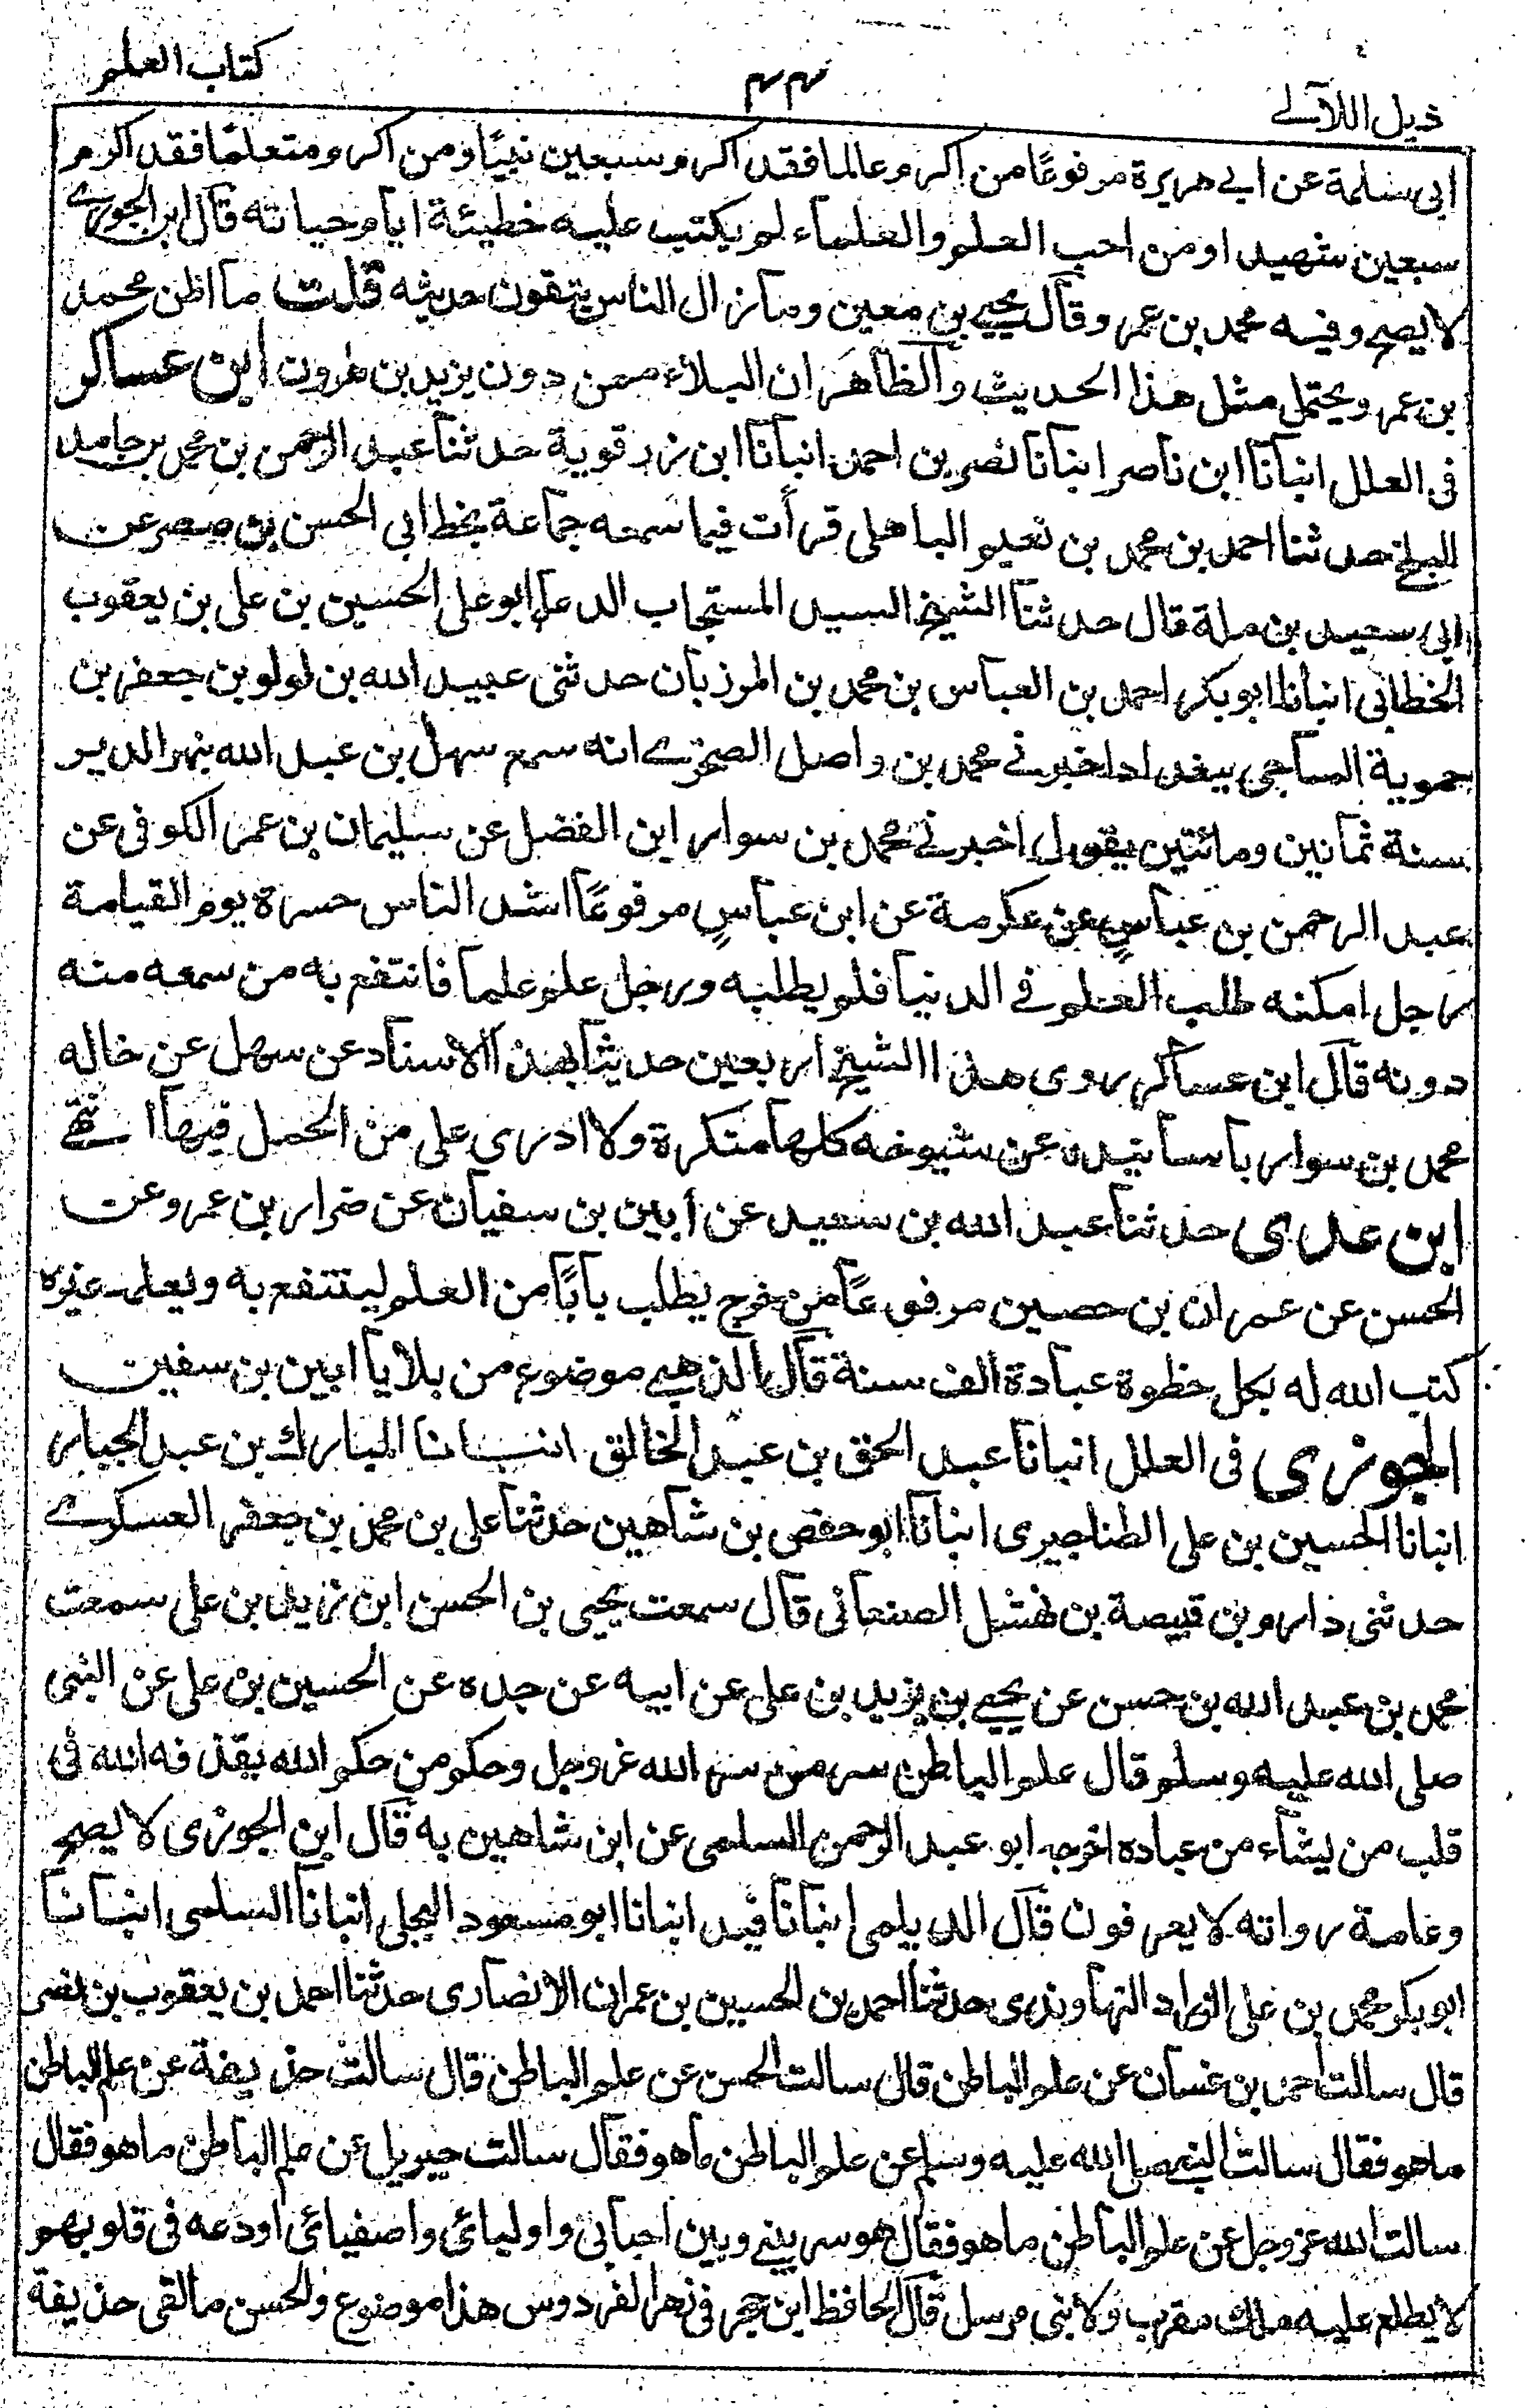 ذيل اللآلے
٤٤
كتاب العلم
ابى سلمة عن ابے هريرة مرفوعًا من اكرم عالما فقد اكرم سبعين نبيًا ومن اكرم متعلمًا فقد اكرم
سبعين شهيدا ومن احب العلم والعلماء لم يكتب عليه خطيئة ايام حياته قال ابن الجوزے
لا يصح وفيه محمد بن عمر وقال يحيے بن معين وما زال الناس يتقون حديثه قلت ما اظن محمد
بن عمر ويحتمل مثل هذا الحديث والظاهر ان البلاء ممن دون يزيد بن هرون ابن عساكر
فى العلل انبأنا ابن ناصر انبانا نصر بن احمد انبأنا ابن زرقوية حدثنا عبد الرحمن بن محمد بن حامد
البلخے حدثنا احمد بن محمد بن نعيم الباهلى قرأت فيما سمعه جماعة بخط ابى الحسن بن صصر عن
ابى سعيد بن ملة قال حدثنا الشيخ السيد المستجاب الدعاء ابو على الحسين بن على بن يعقوب
الخطانى انبانا ابو بكر احمد بن العباس بن محمد بن المرزبان حدثنى عبيد الله بن لولو بن جعفر بن
حموية الساجى ببغداد اخبرنے محمد بن واصل الصخرے انه سمع سهل بن عبد الله بنهر الدير
سنة ثمانين ومائتين يقول اخبرنے محمد بن سوار ابن الفضل عن سليمان بن عمر الكوفى عن
عبد الرحمن بن عباسٍ عن عكرمة عن ابن عباسٍ مرفوعًا اشد الناس حسرة يوم القيامة
رجل امكنه طلب العلم فے الدنيا فلم يطلبه ورجل علم علما فانتفع به من سمعه منه
دونه قال ابن عساكر روى هذا الشيخ اربعين حديثا بهذا الاسناد عن سهل عن خاله
محمد بن سوار بأسانيده عن شيوخه كلها منكرة ولا ادرى على من الحمل فيها انتهے
ابن عدى حدثنا عبد الله بن سعيد عن أبين بن سفيان عن ضرار بن عمرو عن
الحسن عن عمران بن حصين مرفوعًا من خرج يطلب بابًا من العلم لينتفع به ويعلمه غيره
كتب الله له بكل خطوة عبادة الف سنة قال الذهبے موضوع من بلايا ابين بن سفين
الجوزى فى العلل انبانا عبد الحق بن عبد الخالق انبانا المبارك بن عبد الجبار
انبانا الحسين بن على الطناجيرى انبانا ابو حفص بن شاهين حدثنا على بن محمد بن جعفر العسكرے
حدثنى دارم بن قبيصة بن نهشل الصنعانى قال سمعت يحيى بن الحسن ابن زيد بن على سمعت
محمد بن عبد الله بن حسن عن يحيے بن يزيد بن على عن ابيه عن جده عن الحسين بن على عن النبى
صلى الله عليه وسلم قال علم الباطن سر من سر الله عز وجل وحكم من حكم الله يقذفه الله فى
قلب من يشاء من عباده اخرجه ابو عبد الرحمن السلمى عن ابن شاهين به قال ابن الجوزى لا يصح
وعامة رواته لا يعرفون قال الديلمى انبأنا فيد انبانا ابو مسعود البجلى انبانا السلمى انبانا
ابو بكر محمد بن على الزراد النهاوندى حدثنا احمد بن الحسين بن عمران الانصارى حدثنا احمد بن يعقوب بن نصى
قال سالت احمد بن غسان عن علم الباطن قال سالت الحسن عن علم الباطن قال سالت حذيفة عن علم الباطن
ما هو فقال سالت النبے صلى الله عليه وسلم عن علم الباطن ما هو فقال سالت جبريل عن علم الباطن ما هو فقال
سالت الله عز وجل عن علم الباطن ما هو فقال هو سر بينے وبين احبائى واوليائى واصفيائى اودعه فى قلوبهم
لا يطلع عليه ملك مقرب ولا نبى مرسل قال الحافظ ابن حجر فى زهر الفردوس هذا موضوع والحسن ما لقى حذيفة